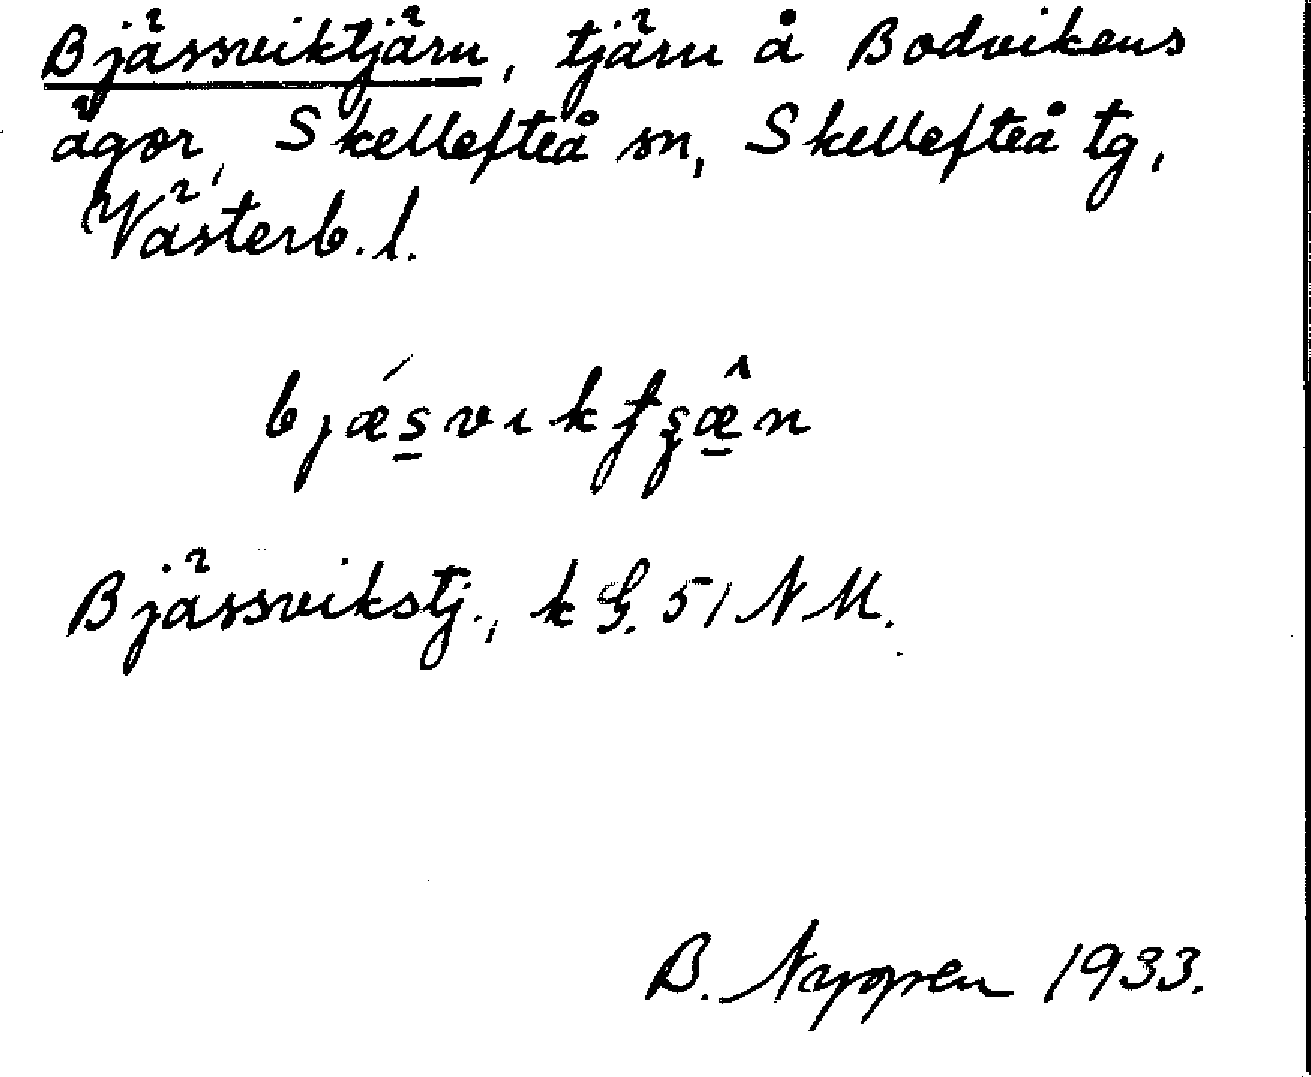 Bjässviktjärn, tjärn å Bodvikens
ägor, Skellefteå sn, Skellefteå tg,
Västerb. l.
bjǽsvıktʂæ̂n
Bjässvikstj., k G. 51 N M.
B. Nygren 1933.